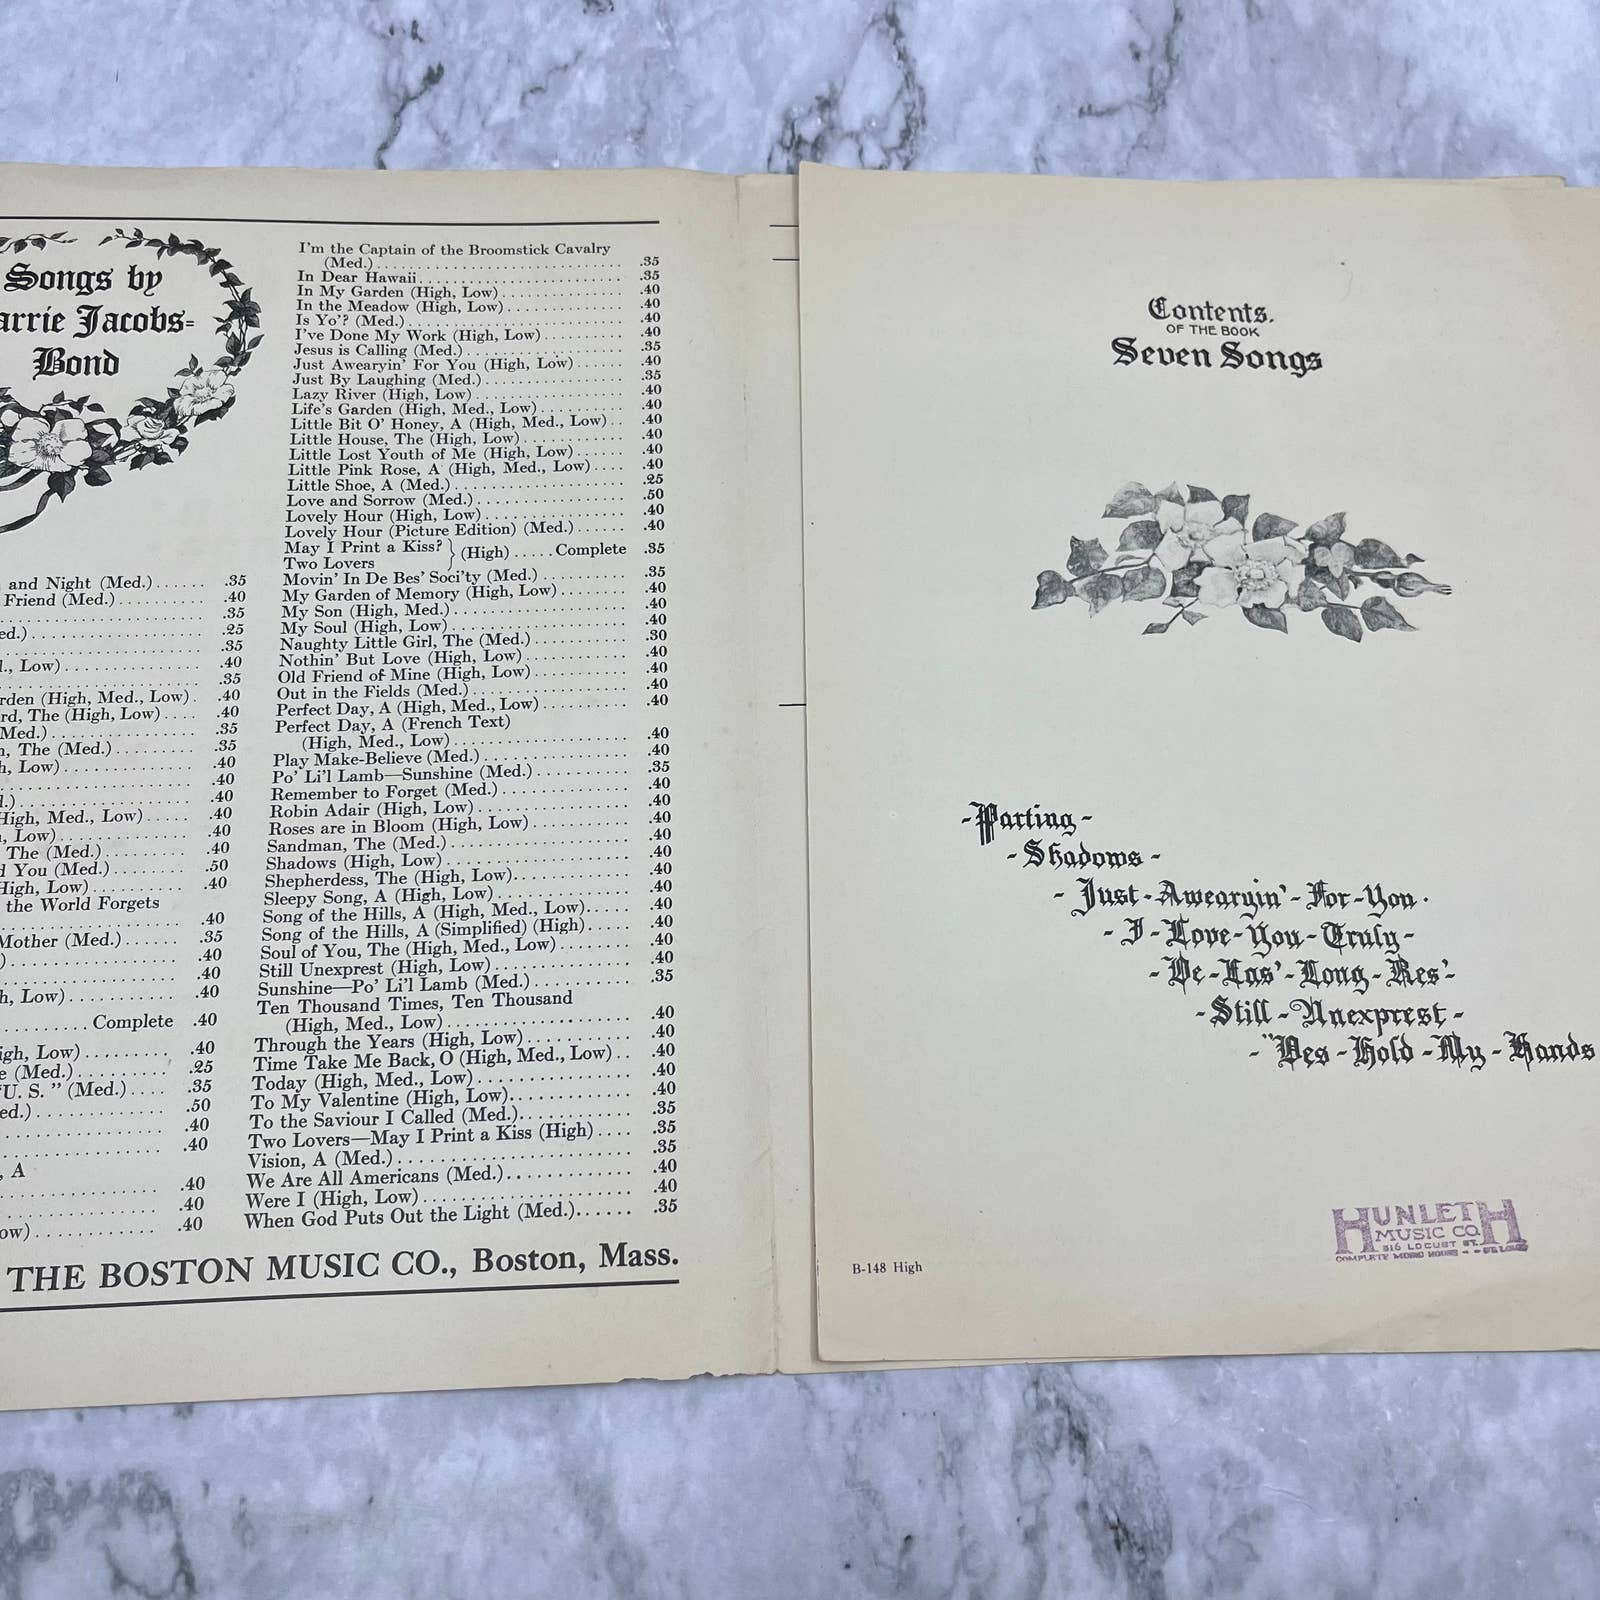 Songs by
arrie Jacobs=
Bond
and Night (Med.)...... .35
Friend (Med.).......... .40
.35
ed.)..................... .25
.35
., Low)................. .40
.35
rden (High, Med., Low). .40
rd, The (High, Low).... .40
Med.).................. .35
, The (Med.)........... .35
h, Low)................ .40
.40
.)..................... .40
High, Med., Low)..... .40
, Low)................. .40
The (Med.)............. .40
d You (Med.)........... .50
High, Low)............. .40
the World Forgets
.40
Mother (Med.)...... .35
)...................... .40
.40
h, Low)................ .40
Complete .40
igh, Low).............. .40
e (Med.)............... .25
"U. S." (Med.)......... .35
ed.)................... .50
.40
.40
, A
.40
.40
ow).................... .40
I'm the Captain of the Broomstick Cavalry
(Med.)................. .35
In Dear Hawaii......... .35
In My Garden (High, Low)......... .40
In the Meadow (High, Low)........ .40
Is Yo'? (Med.)......... .40
I've Done My Work (High, Low).... .40
Jesus is Calling (Med.).......... .35
Just Awearyin' For You (High, Low)...... .40
Just By Laughing (Med.).......... .35
Lazy River (High, Low)........... .40
Life's Garden (High, Med., Low).. .40
Little Bit O' Honey, A (High, Med., Low).. .40
Little House, The (High, Low).... .40
Little Lost Youth of Me (High, Low)...... .40
Little Pink Rose, A (High, Med., Low).... .40
Little Shoe, A (Med.)............ .25
Love and Sorrow (Med.)........... .50
Lovely Hour (High, Low).......... .40
Lovely Hour (Picture Edition) (Med.)...... .40
May I Print a Kiss? } (High) ..... Complete .35
Two Lovers
Movin' In De Bes' Soci'ty (Med.)......... .35
My Garden of Memory (High, Low).. .40
My Son (High, Med.).............. .40
My Soul (High, Low).............. .40
Naughty Little Girl, The (Med.).. .30
Nothin' But Love (High, Low)..... .40
Old Friend of Mine (High, Low)... .40
Out in the Fields (Med.)......... .40
Perfect Day, A (High, Med., Low). .40
Perfect Day, A (French Text)
(High, Med., Low)................ .40
Play Make-Believe (Med.)......... .40
Po' Li'l Lamb—Sunshine (Med.).... .35
Remember to Forget (Med.)........ .40
Robin Adair (High, Low).......... .40
Roses are in Bloom (High, Low)... .40
Sandman, The (Med.).............. .40
Shadows (High, Low).............. .40
Shepherdess, The (High, Low)..... .40
Sleepy Song, A (High, Low)....... .40
Song of the Hills, A (High, Med., Low)..... .40
Song of the Hills, A (Simplified) (High)..... .40
Soul of You, The (High, Med., Low)....... .40
Still Unexprest (High, Low)...... .40
Sunshine—Po' Li'l Lamb (Med.).... .35
Ten Thousand Times, Ten Thousand
(High, Med., Low)................ .40
Through the Years (High, Low).... .40
Time Take Me Back, O (High, Med., Low).. .40
Today (High, Med., Low).......... .40
To My Valentine (High, Low)...... .40
To the Saviour I Called (Med.)... .35
Two Lovers—May I Print a Kiss (High).... .35
Vision, A (Med.)................. .35
We Are All Americans (Med.)...... .40
Were I (High, Low)............... .40
When God Puts Out the Light (Med.)...... .35
THE BOSTON MUSIC CO., Boston, Mass.
Contents.
OF THE BOOK
Seven Songs
-Parting-
-Shadows-
-Just-Awearyin'-For-You.
-I-Love-You-Truly-
-De-Las'-Long-Res'-
-Still-Unexprest-
-"Des-Hold-My-Hands
B-148 High
HUNLETH
MUSIC CO.
516 LOCUST ST.
COMPLETE MUSIC HOUSE -- ST. LOUIS